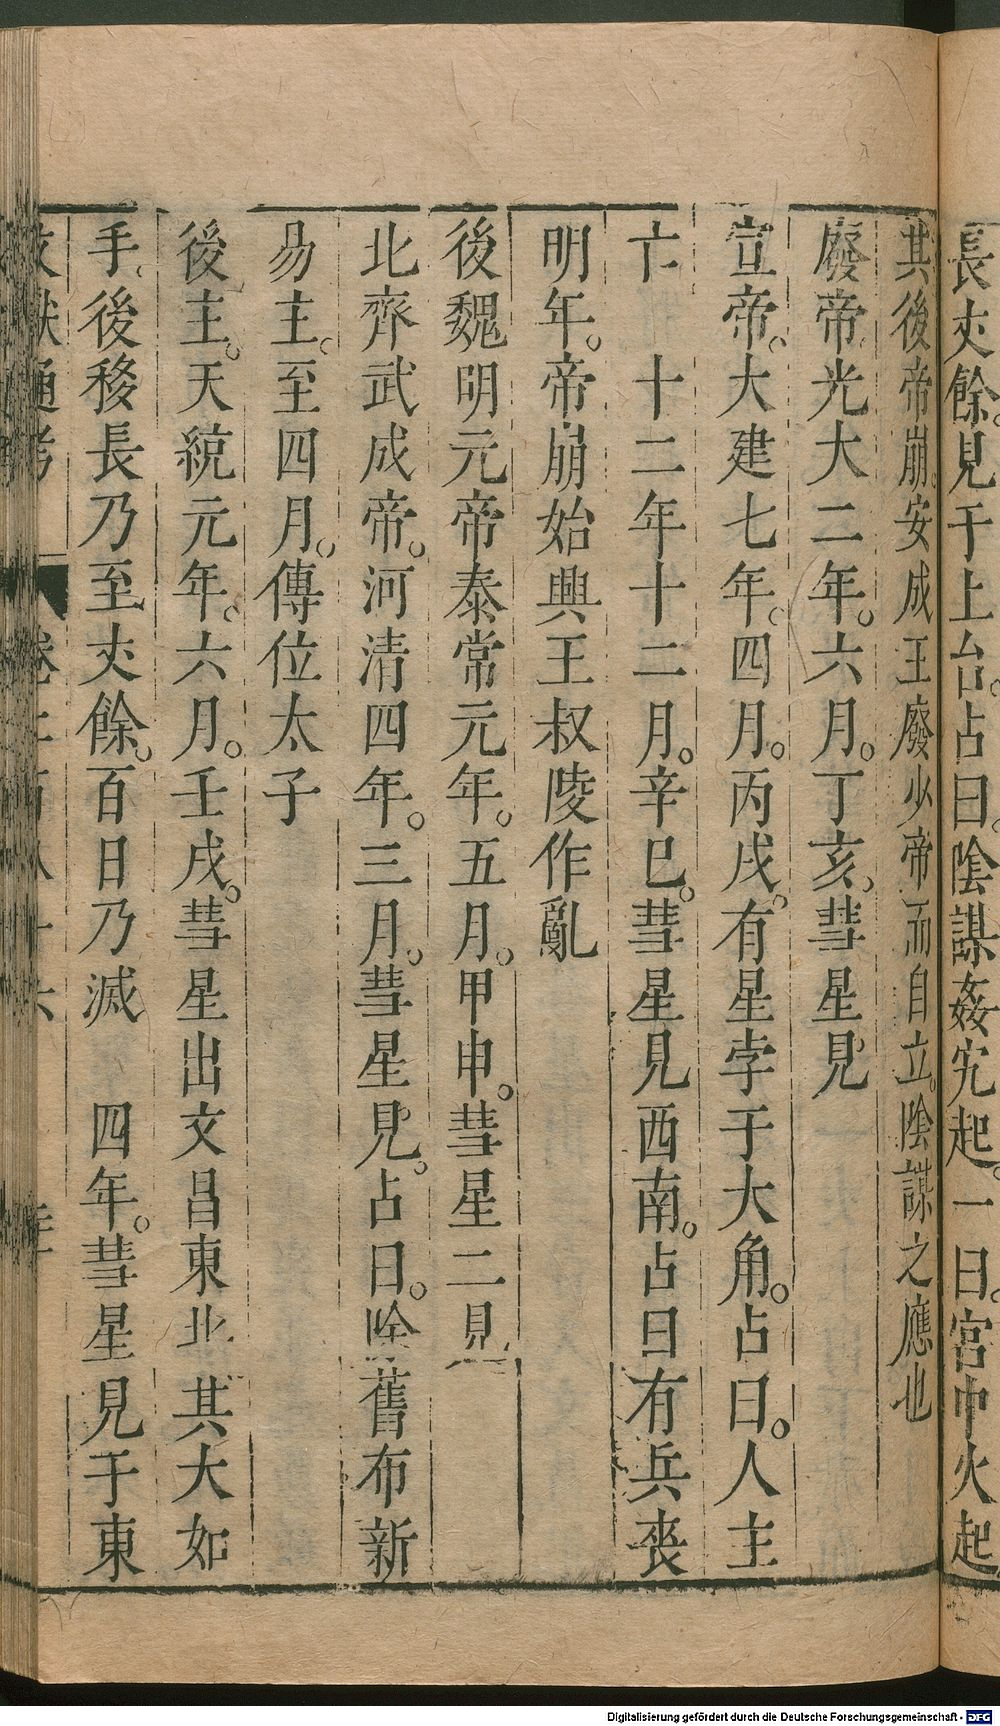 長丈餘。見于上台。占曰。陰謀姦宄起。一曰。宮中火起。
其後帝崩。安成王廢少帝而自立。陰謀之應也
廢帝光大二年。六月。丁亥、彗星見
宣帝。大建七年。四月。丙戌。有星孛于大角。占曰。人主
亡　十二年十二月。辛巳。彗星見西南。占曰有兵喪
明年。帝崩始興王叔陵作亂
後魏明元帝泰常元年。五月。甲申。彗星二見
北齊武成帝。河清四年。三月。彗星見。占曰。除舊布新
易主。至四月。傳位太子
後主。天統元年。六月。壬戌。彗星出文昌東北其大如
手。後移長乃至丈餘。百日乃滅　四年。彗星見于東
文獻通考　卷二百八十六
Digitalisierung gefördert durch die Deutsche Forschungsgemeinschaft - DFG